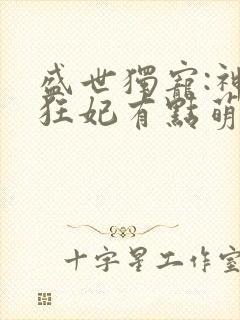 盛世獨寵:神
狂妃有點萌
十字星工作室